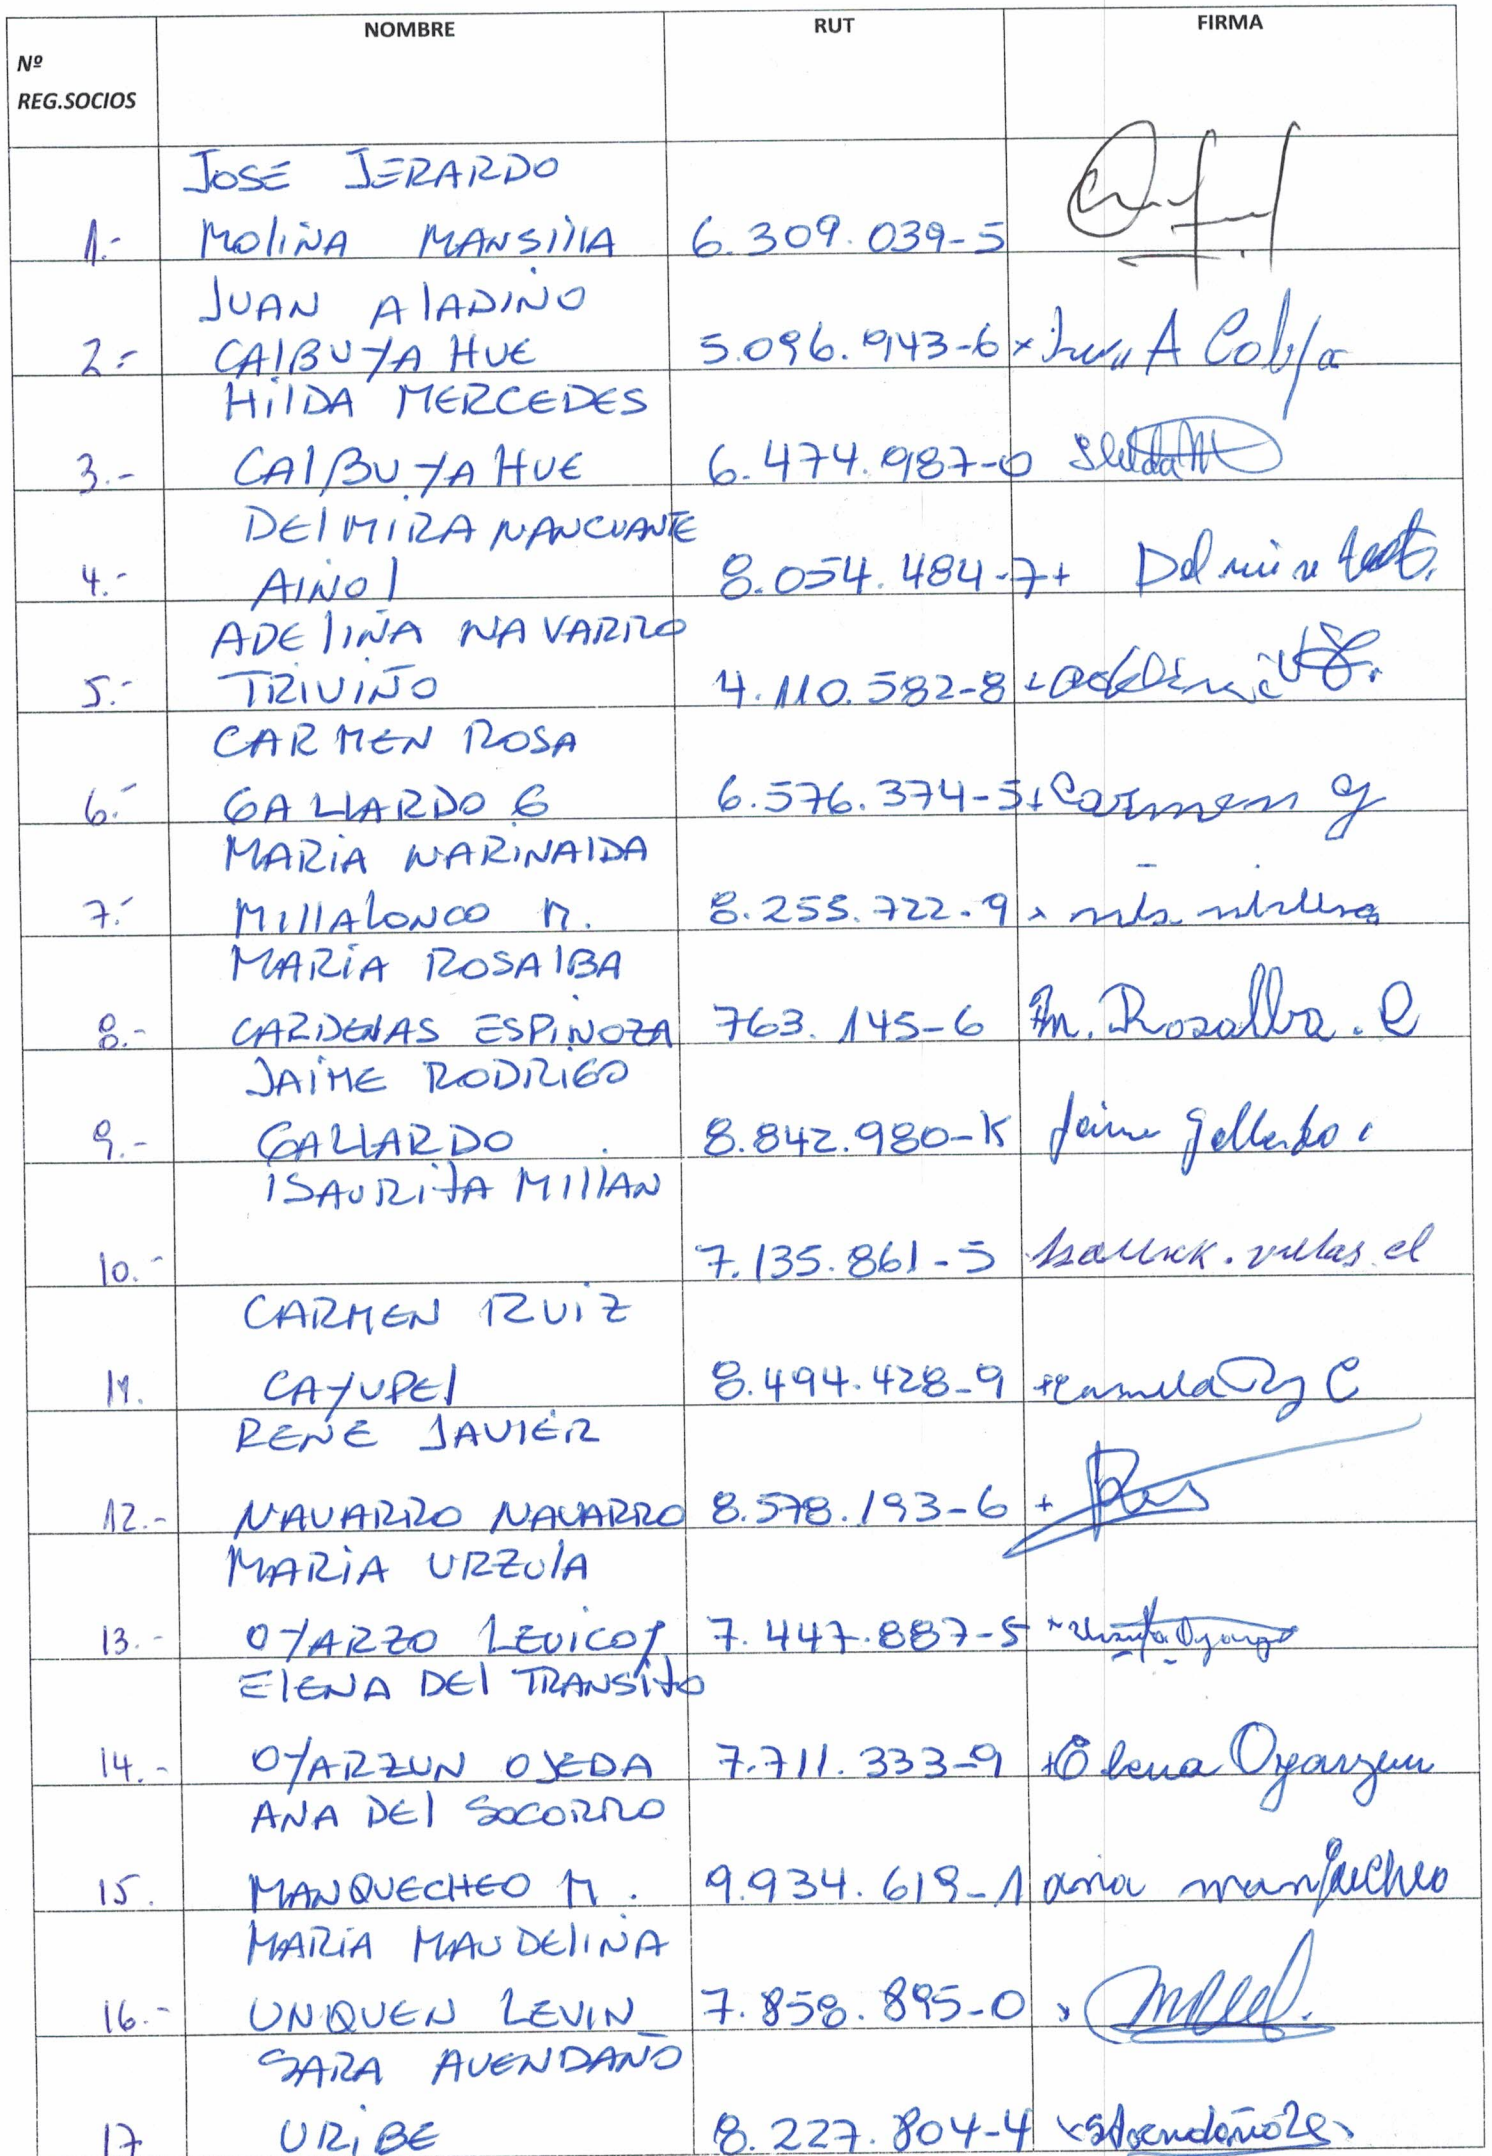 NOMBRE RUT FIRMA
Nº
REG.SOCIOS
JOSE JERARDO
1.- MOLINA MANSILLA 6.309.039-5
JUAN ALADINO
2.- CALBUYAHUE 5.096.943-6 x Juan A Calb/a
HILDA MERCEDES
3.- CALBUYAHUE 6.474.987-0 Hilda M
DELMIRA NANCUANTE
4.- AINOL 8.054.484-7+ Delmira
ADELINA NAVARRO
5.- TRIVIÑO 4.110.582-8
CARMEN ROSA
6.- GALLARDO G 6.576.374-5+ Carmen g
MARIA NARINALDA
7.- MILLALONCO M. 8.255.722-9 x
MARIA ROSALBA
8.- CARDENAS ESPINOZA 763.145-6 M. Rosalba. C
JAIME RODRIGO
9.- GALLARDO 8.842.980-K Jaime Gallardo
ISAURITA MILLAN
10.- 7.135.861-5
CARMEN RUIZ
11. CAYUPEL 8.494.428-9
RENE JAVIER
12.- NAVARRO NAVARRO 8.578.193-6 +
MARIA URZULA
13.- OYARZO LEVICOY 7.447.887-5
ELENA DEL TRANSITO
14.- OYARZUN OJEDA 7.711.333-9 +Elena Oyarzun
ANA DEL SOCORRO
15. MANQUECHEO M. 9.934.619-1 ana manquecheo
MARIA MAUDELINA
16.- UNQUEN LEVIN 7.858.895-0 x
SARA AVENDAÑO
17 URIBE 8.227.804-4